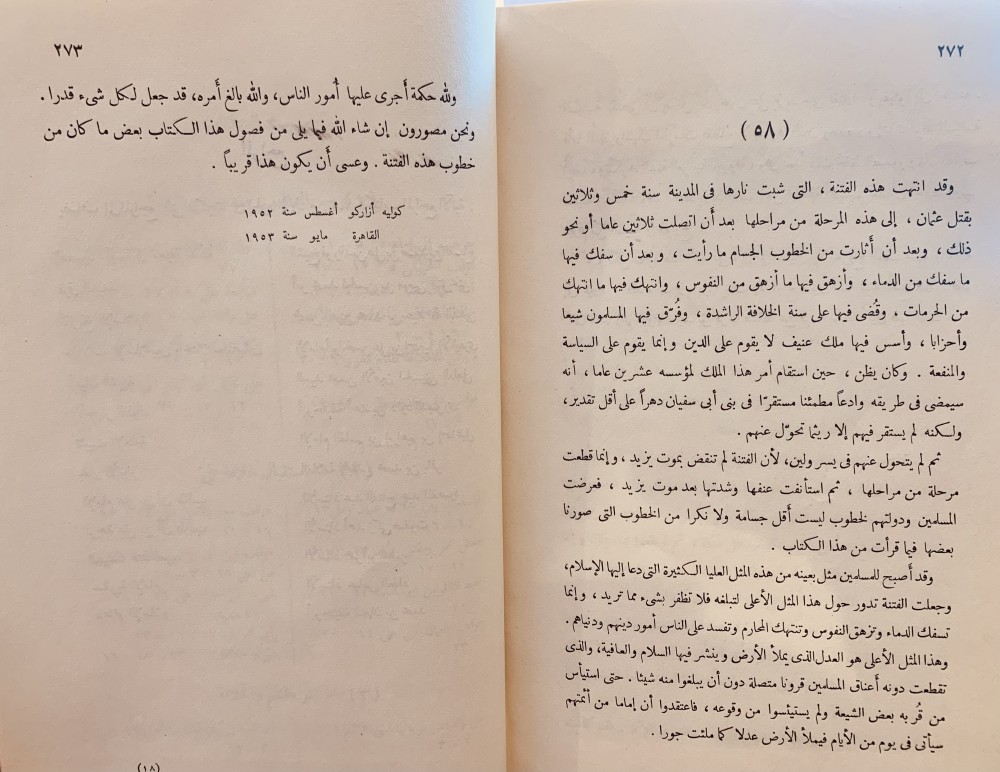 ٢٧٢
( ٥٨ )
وقد انتهت هذه الفتنة ، التى شبت نارها فى المدينة سنة خمس وثلاثين
بقتل عثمان ، إلى هذه المرحلة من مراحلها بعد أن اتصلت ثلاثين عاما أو نحو
ذلك ، وبعد أن أثارت من الخطوب الجسام ما رأيت ، وبعد أن سفك فيها
ما سفك من الدماء ، وأزهق فيها ما أزهق من النفوس ، وانتهك فيها ما انتهك
من الحرمات ، وقُضى فيها على سنة الخلافة الراشدة ، وفُرّق فيها المسلمون شيعا
وأحزابا ، وأسس فيها ملك عنيف لا يقوم على الدين وإنما يقوم على السياسة
والمنفعة . وكان يظن ، حين استقام أمر هذا الملك لمؤسسه عشرين عاما ، أنه
سيمضى فى طريقه وادعاً مطمئنا مستقرّا فى بنى أبى سفيان دهراً على أقل تقدير،
ولكنه لم يستقر فيهم إلا ريثما تحوّل عنهم .
ثم لم يتحول عنهم فى يسر ولين، لأن الفتنة لم تنقض بموت يزيد ، وإنما قطعت
مرحلة من مراحلها ، ثم استأنفت عنفها وشدتها بعد موت يزيد ، فعرضت
المسلمين ودولتهم لخطوب ليست أقل جسامة ولا نكرا من الخطوب التى صورنا
بعضها فيما قرأت من هذا الكتاب .
وقد أصبح للمسلمين مثل بعينه من هذه المثل العليا الكثيرة التى دعا إليها الإسلام،
وجعلت الفتنة تدور حول هذا المثل الأعلى لتبلغه فلا تظفر بشىء مما تريد ، وإنما
تسفك الدماء وتزهق النفوس وتنتهك المحارم وتفسد على الناس أمور دينهم ودنياهم .
وهذا المثل الأعلى هو العدل الذى يملأ الأرض وينشر فيها السلام والعافية، والذى
تقطعت دونه أعناق المسلمين قرونا متصلة دون أن يبلغوا منه شيئا . حتى استيأس
من قُربه بعض الشيعة ولم يستيئسوا من وقوعه ، فاعتقدوا أن إماما من أئمتهم
سيأتى فى يوم من الأيام فيملأ الأرض عدلا كما ملئت جورا .
٢٧٣
ولله حكمة أجرى عليها أُمور الناس، والله بالغ أمره، قد جعل لكل شىء قدرا .
ونحن مصورون إن شاء الله فيما يلى من فصول هذا الكتاب بعض ما كان من
خطوب هذه الفتنة . وعسى أن يكون هذا قريباً .
كوليه أزاركو أغسطس سنة ١٩٥٢
القاهرة مايو سنة ١٩٥٣
(١٨)